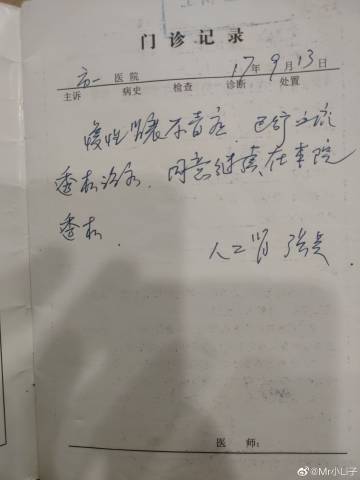 门诊记录
市一 医院 17年9月13日
主诉 病史 检查 诊断 处置
慢性肾衰尿毒症 已行血液
透析治疗 同意继续在本院
透析
人工肾
医 师：
@Mr小L子